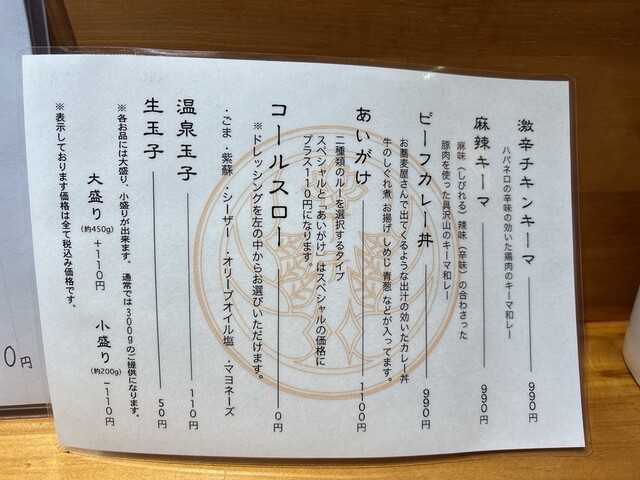 激辛チキンキーマ 990円
ハバネロの辛味の効いた鶏肉のキーマ和レー
麻辣キーマ 990円
麻味（しびれる）辣味（辛味）の合わさった
豚肉を使った具沢山のキーマ和レー
ビーフカレー丼 990円
お蕎麦屋さんで出てくるような出汁の効いたカレー丼
牛のしぐれ煮 お揚げ しめじ 青葱 などが入ってます。
あいがけ 1100円
二種類のルーを選択するタイプ
スペシャルと「あいがけ」はスペシャルの価格に
プラス110円になります。
コールスロー 0円
※ドレッシングを左の中からお選びいただけます。
・ごま ・紫蘇 ・シーザー ・オリーブオイル塩 ・マヨネーズ
温泉玉子 110円
生玉子 50円
※各お品には大盛り、小盛りが出来ます。 通常では300gのご提供になります。
大盛り（約450g）＋110円 小盛り（約200g）−110円
※表示しております価格は全て税込み価格です。
0円